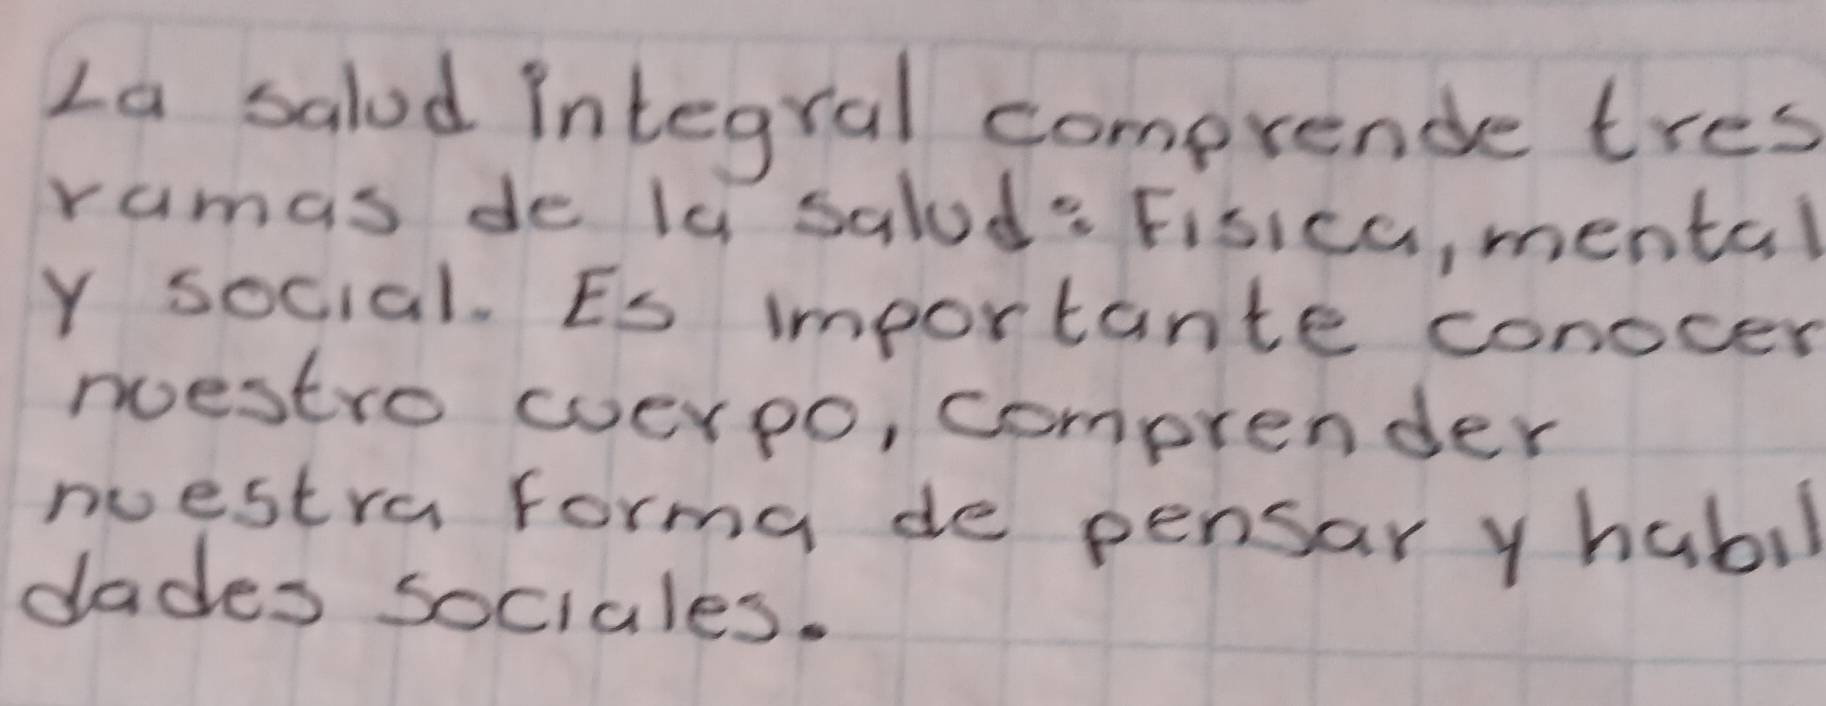 La salud integral comprende tres
ramas de la salud: Fisica, mental
y social. Es importante conocer
nuestro cuerpo, comprender
nuestra forma de pensar y habil
dades sociales.